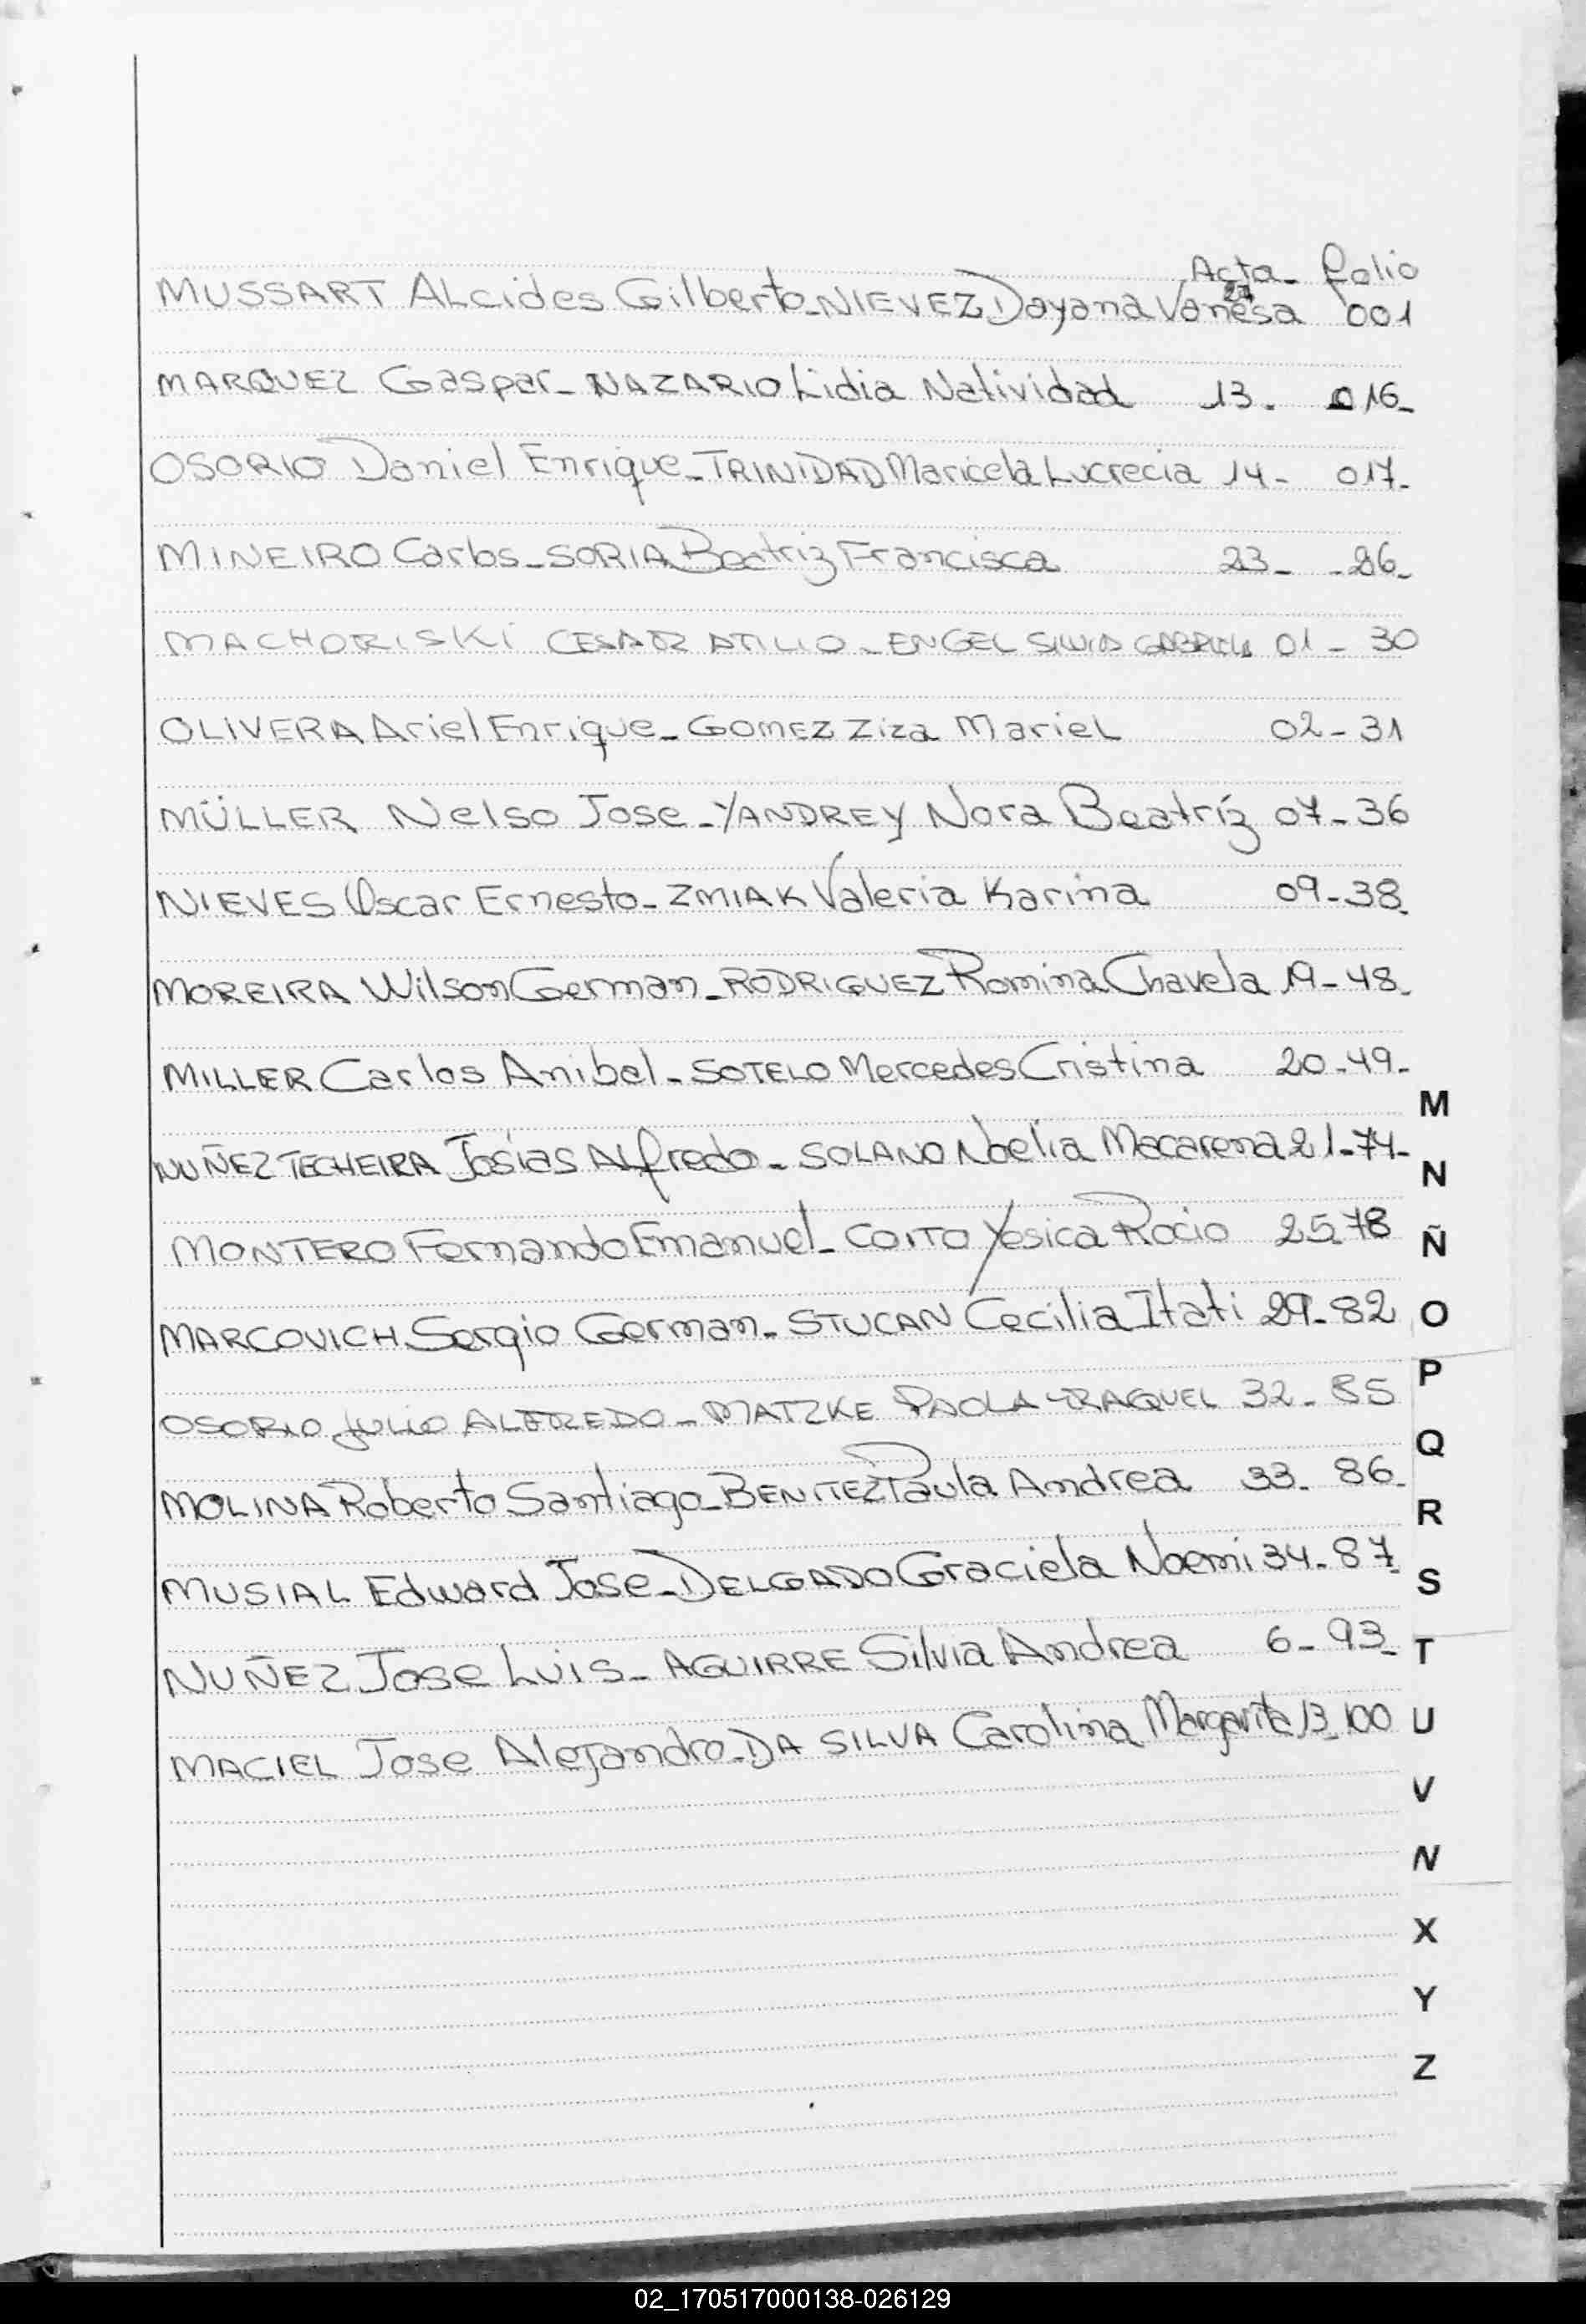 Acta - folio
MUSSART ALcides Gilberto - NIEVEZ Dayana Vanesa 001
MARQUEZ Gaspar - NAZARIO Lidia Natividad 13. 016-
OSORIO Daniel Enrique - TRINIDAD Maricela Lucrecia 14 - 017-
MINEIRO Carlos - SORIA Beatriz Francisca 23 - - 26-
MACHORISKI CESAR ATILIO - ENGEL SILVIA GABRIELA 01 - 30
OLIVERA Ariel Enrique - GOMEZ Ziza MarieL 02 - 31
MÜLLER Nelso Jose - YANDREY Nora Beatríz 07 - 36
NIEVES Oscar Ernesto - ZMIAK Valeria Karina 09 - 38-
MOREIRA Wilson German - RODRIGUEZ Romina Chavela 19 - 48-
MILLER Carlos Anibal - SOTELO Mercedes Cristina 20 - 49-
NUÑEZ TECHEIRA Josías ALfredo - SOLANO Noelia Macarena 21 - 74-
MONTERO Fernando Emanuel - COITO Yesica Rocio 25 - 78
MARCOVICH Sergio German - STUCAN Cecilia Itati 29 - 82
OSORIO JULIO ALFREDO - MATZKE PAOLA RAQUEL 32 - 85
MOLINA Roberto Santiago - BENITEZ Paula Andrea 33 - 86-
MUSIAL Edward Jose - DELGADO Graciela Noemi 34 - 87-
NUÑEZ Jose Luis - AGUIRRE Silvia Andrea 6 - 93-
MACIEL Jose Alejandro - DA SILVA Carolina Margarita 13 - 100
M
N
Ñ
O
P
Q
R
S
T
U
V
N
X
Y
Z
02_170517000138-026129